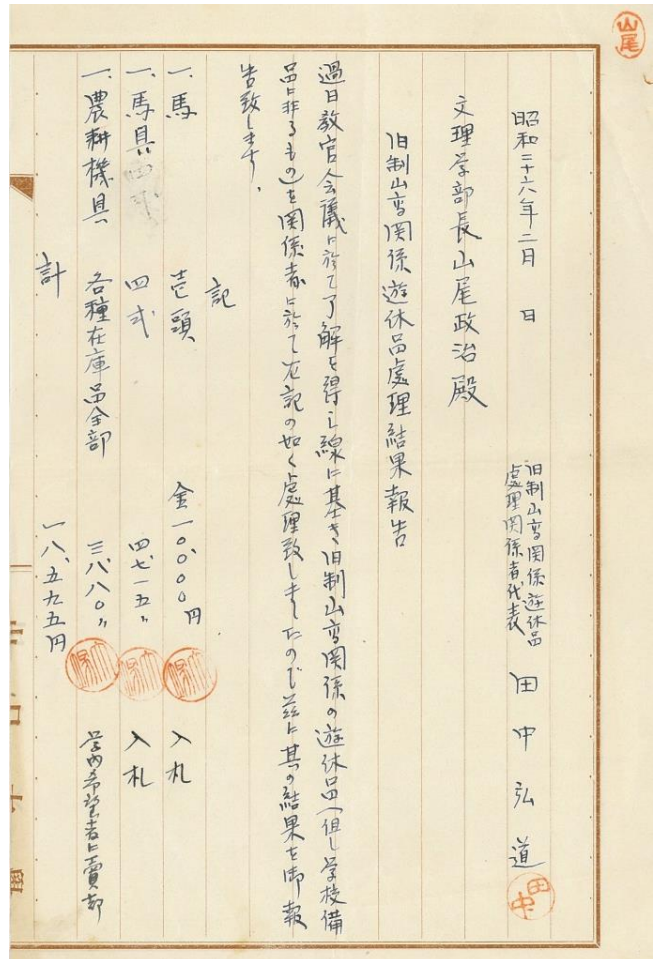 山尾
昭和二十六年二月　日
旧制山高関係遊休品
處理関係者代表　田中弘道
田中
文理学部長山尾政治殿
旧制山高関係遊休品處理結果報告
過日教官会議に於て了解を得し線に基き旧制山高関係の遊休品（但し学校備
品に非るもの）を関係者に於て左記の如く處理致しましたので茲に其の結果を御報
告致します、
記
一、馬　壱頭　金一〇、〇〇〇円　入札
一、馬具　四式　四、七一五〃　入札
一、農耕機具　各種在庫品全部　三、八八〇〃　学内希望者に賣却
計　一八、五九五円